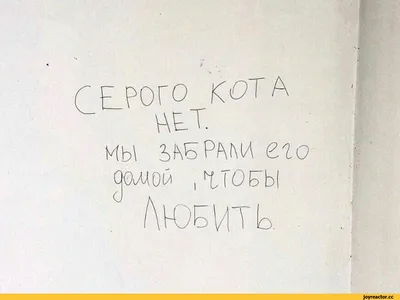 СЕРОГО КОТА
НЕТ.
МЫ ЗАБРАЛИ его
домой, ЧТОБЫ
ЛЮБИТЬ
joyreactor.cc